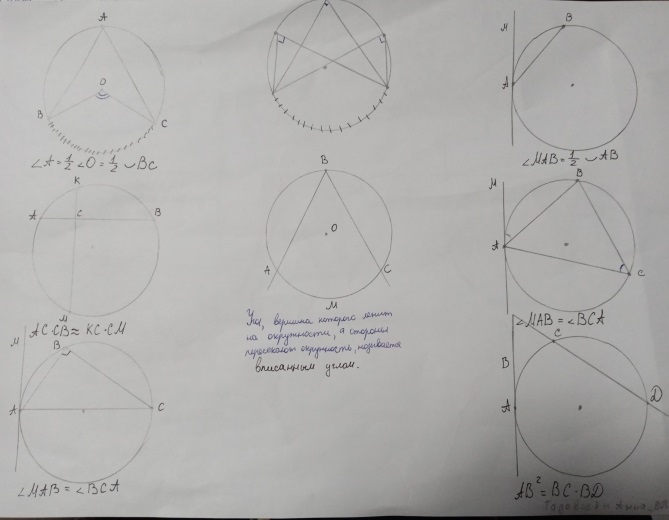 A
O
B
C
∠A = 1/2 ∠O = 1/2 ◡ BC
M
B
A
∠MAB = 1/2 ◡ AB
K
A
C
B
M
AC·CB ≈ KC·CM
B
O
A
C
M
Угол, вершина которого лежит
на окружности, а стороны
пересекают окружность, называется
вписанным углом.
M
B
A
C
∠MAB = ∠BCA
M
B
A
C
∠MAB = ∠BCA
C
B
A
D
AB² = BC·BD
Анна